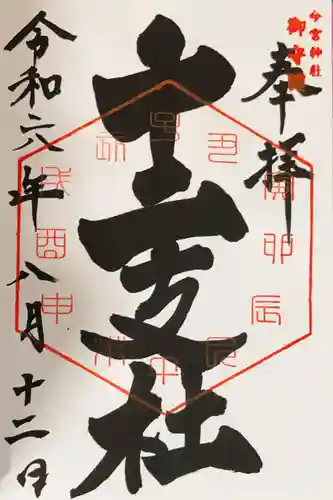 今宮神社
奉拝
十二支社
子
丑
寅
卯
辰
巳
午
未
申
酉
戌
亥
令和六年八月十二日